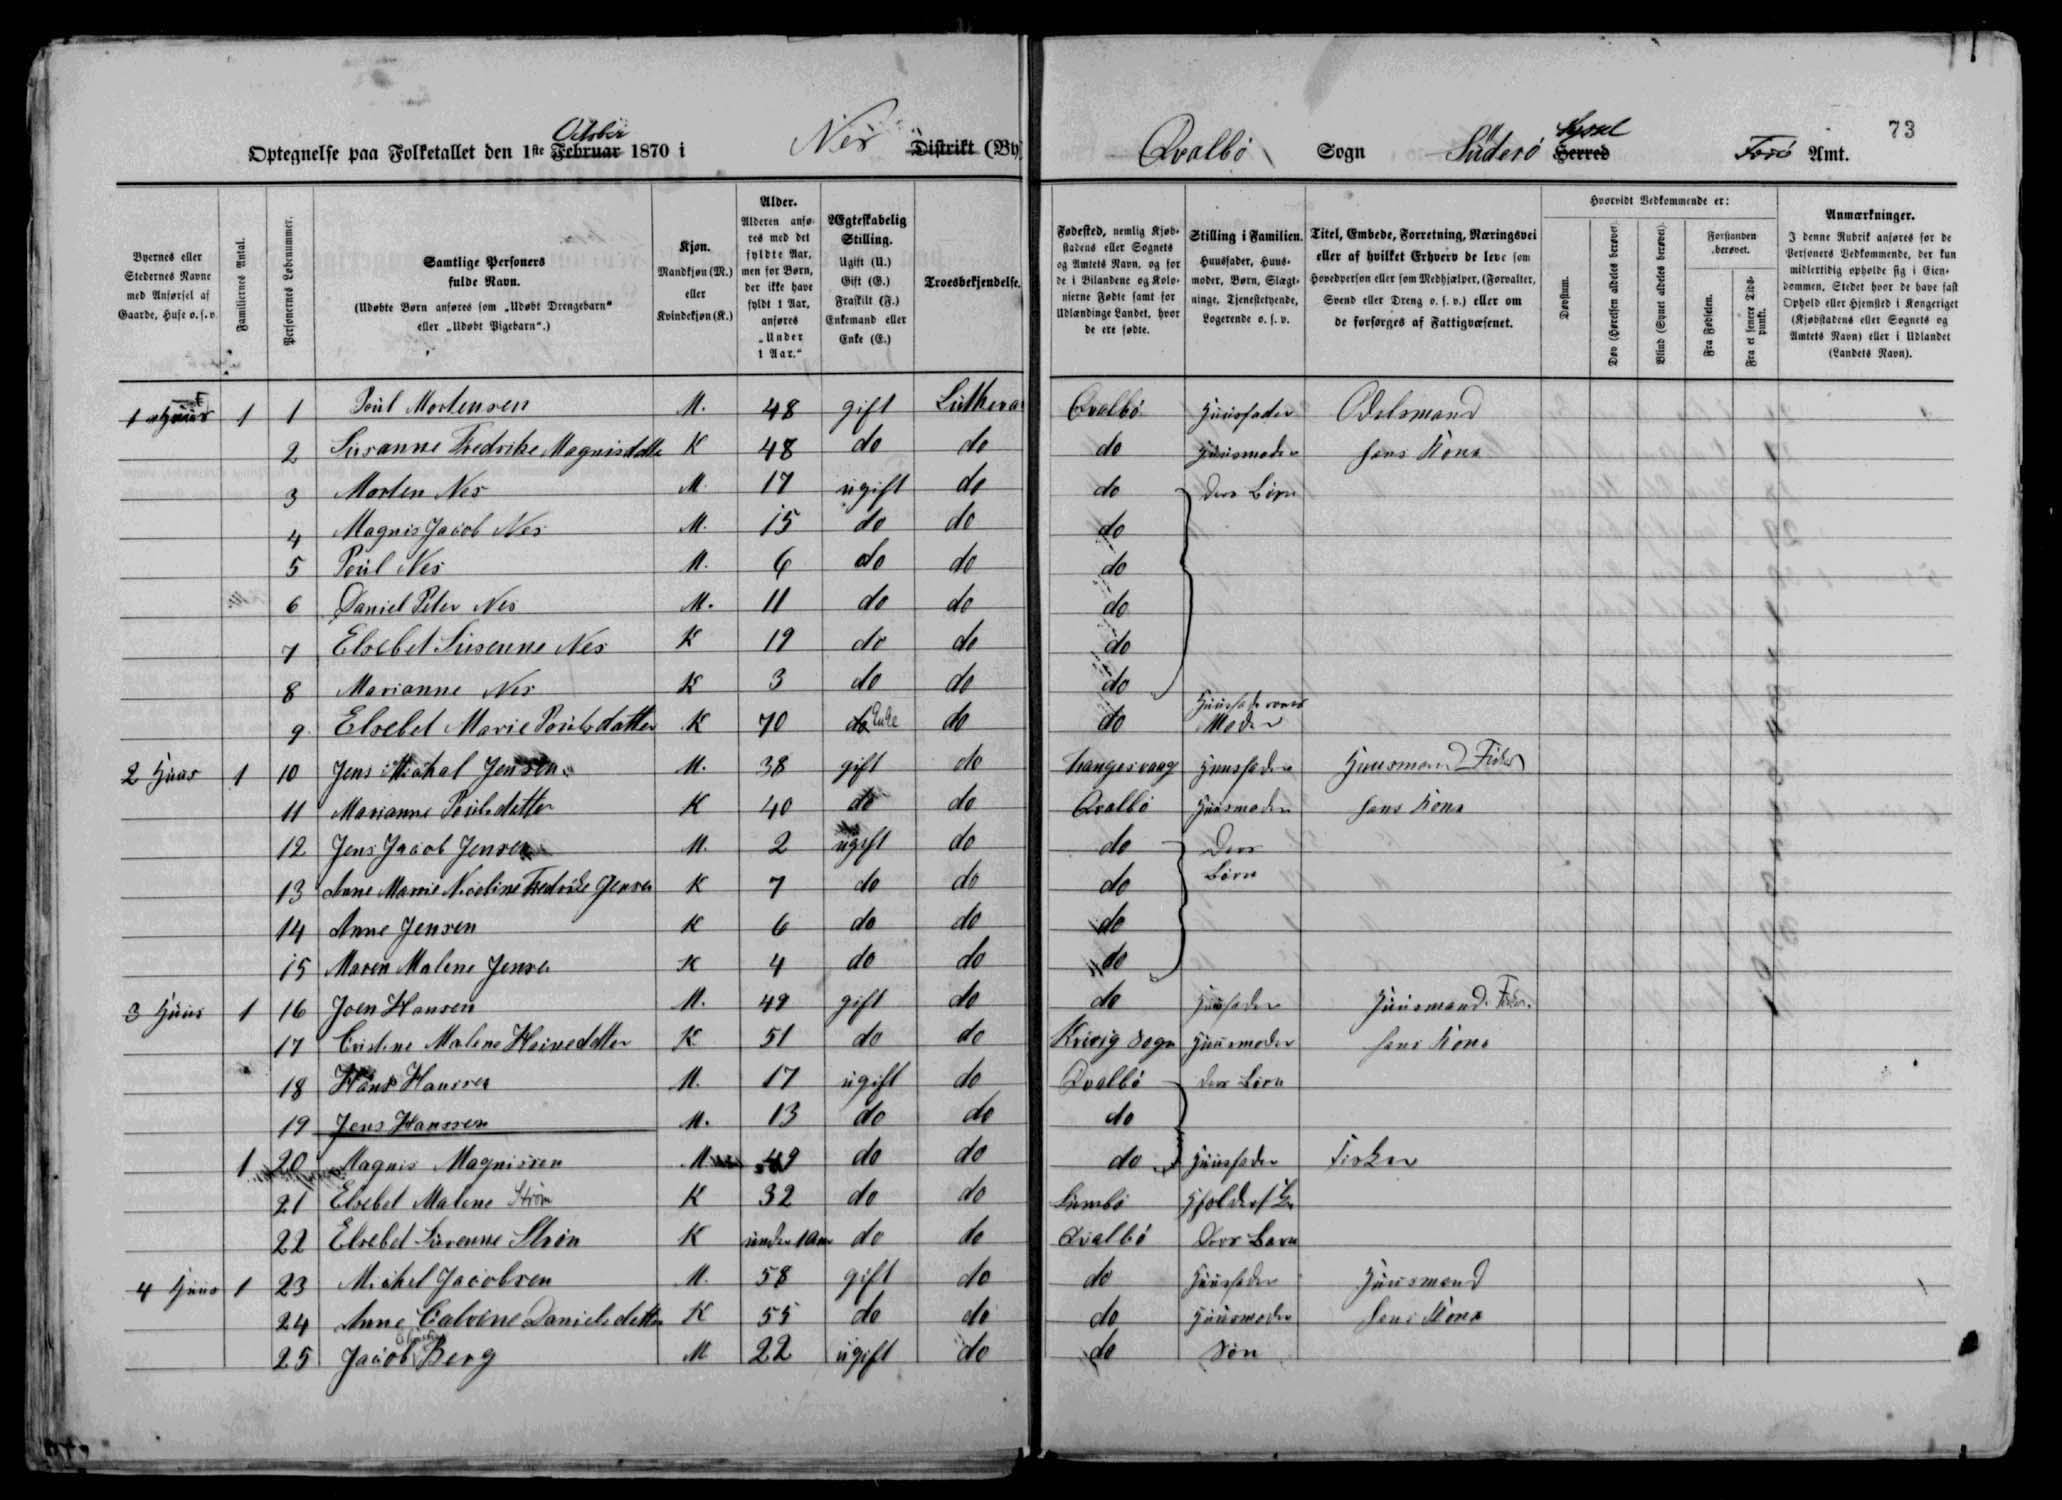 73
October Syssel
Optegnelse paa Folketallet den 1ste Februar 1870 i Nes Distrikt (By) Qvalbø Sogn Süderø Herred Færø Amt.
Byernes eller Stedernes Navne med Anførsel af Gaarde, Huse o. s. v.
Familiernes Antal.
Personernes Løbenummer.
Samtlige Personers fulde Navn.
(Udøbte Børn anføres som „Udøbt Drengebarn“ eller „Udøbt Pigebarn“.)
Kjøn.
Mandkjøn (M.) eller Kvindekjøn (K.)
Alder.
Alderen anføres med det fyldte Aar, men for Børn, der ikke have fyldt 1 Aar, anføres „Under 1 Aar.“
Ægteskabelig Stilling.
Ugift (U.) Gift (G.) Fraskilt (F.) Enkemand eller Enke (E.)
Troesbekjendelse.
Fødested, nemlig Kjøbstadens eller Sognets og Amtets Navn, og for de i Bilandene og Kolonierne Fødte samt for Udlændinge Landet, hvor de ere fødte.
Stilling i Familien.
Huusfader, Huusmoder, Børn, Slægtninge, Tjenestetyende, Logerende o. s. v.
Titel, Embede, Forretning, Næringsvei eller af hvilket Erhverv de leve som Hovedperson eller som Medhjælper, (Forvalter, Svend eller Dreng o. s. v.) eller om de forsørges af Fattigvæsenet.
Hvorvidt Vedkommende er:
Døvstum.
Døv (Hørelsen aldeles berøvet).
Blind (Synet aldeles berøvet).
Forstanden berøvet.
Fra Fødselen.
Fra et senere Tidspunkt.
Anmærkninger.
I denne Rubrik anføres for de Personers Vedkommende, der kun midlertidig opholde sig i Eiendommen, Stedet hvor de have fast Ophold eller Hjemsted i Kongeriget (Kjøbstadens eller Sognets og Amtets Navn) eller i Udlandet (Landets Navn).
1 Huus 1 1 Poul Mortensen M. 48 gift Luthera Qvalbø Huusfader Odelsmand
2 Susanne Fredrike Magnisdatte K 48 do do do Huusmoder hans Kone
3 Morten Nes M. 17 ugift do do Deres Børn
4 Magnis Jacob Nes M. 15 do do do
5 Poul Nes M. 6 do do do
6 Daniel Peter Nes M. 11 do do do
7 Elsebet Susenne Nes K 19 do do do
8 Marianne Nes K 3 do do do
9 Elsebet Marie Poulsdatter K 70 do Enke do do Huusfaderens Moder
2 Huus 1 10 Jens Michal Jensen M. 38 gift do Frangesvaag Huusfader Huusmand Fisker
11 Marianne Poulsdatter K 40 do do Qvalbø Huusmoder hans Kone
12 Jens Jacob Jensen M. 2 ugift do do Deres
13 Anne Marie Nicoline Fredrike Jensen K 7 do do do Børn
14 Anne Jensen K 6 do do do
15 Maren Malene Jensen K 4 do do do
3 Huus 1 16 Joen Hansen M. 49 gift do do Huusfader Huusmand. Fisker.
17 Cristine Malene K 51 do do Kvivig Sogn Huusmoder hans Kone
18 Hans Hanssen M. 17 ugift do Qvalbø deres Børn
19 Jens Hanssen M. 13 do do do
1 20 Magnis Magnissen M 49 do do do Huusfader Fisker
21 Elsebet Malene Strøm K 32 do do Sumbø
22 Elsebet Susenne Strøm K under 1 Aar do do Qvalbø Deres Barn
4 Huus 1 23 Michel Jacobsen M. 58 gift do do Huusfader Huusmand
24 Anne Catrine Danielsdatter K 55 do do do Huusmoder hans Kone
25 Jacob Berg M 22 ugift do do Søn